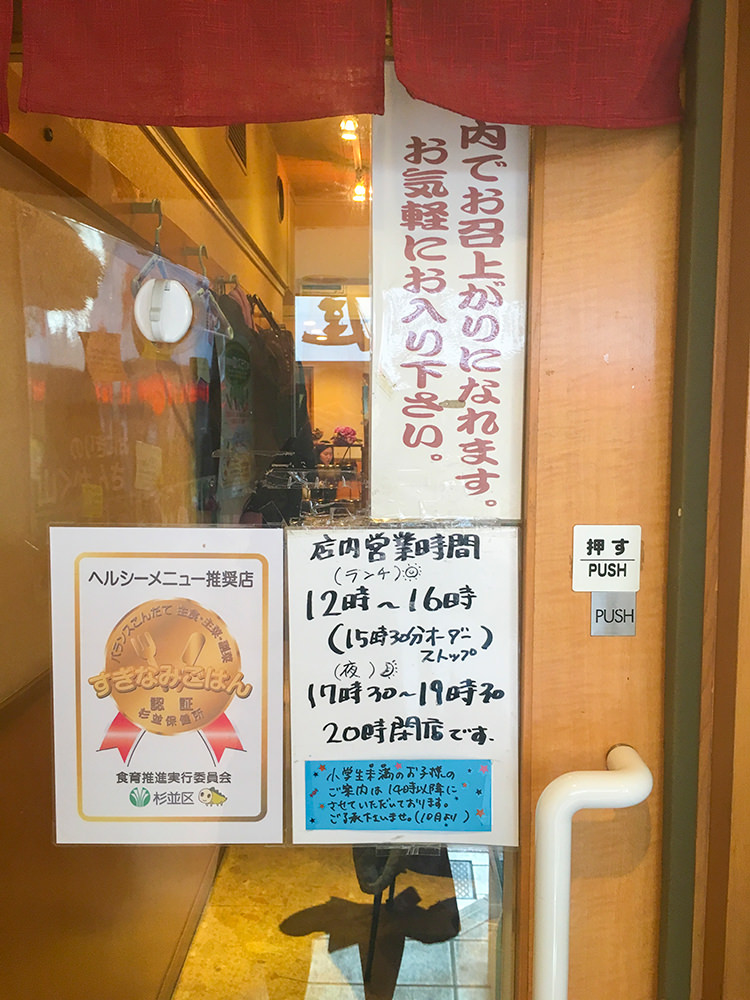 内でお召上がりになれます。
お気軽にお入り下さい。
ヘルシーメニュー推奨店
バランスこんだて 主食・主菜・副菜
すぎなみごはん
認証
杉並保健所
食育推進実行委員会
杉並区
店内営業時間
(ランチ)
12時〜16時
(15時30分オーダー
ストップ)
(夜)
17時30〜19時30
20時閉店です.
小学生未満のお子様の
ご案内は14時以降に
させていただいております。
ご了承下さいませ。(10月より)
押す
PUSH
PUSH